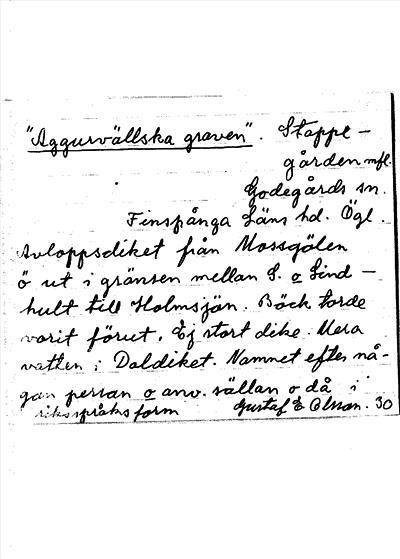 "Aggurvällska graven". Stappe-
gården mfl.
Godegårds sn.
Finspånga Läns hd. Ögl.
Avloppsdiket från Mossgölen
ö ut i gränsen mellan S. o Lind-
hult till Holmsjön. Bäck torde
varit förut. Ej stort dike. Mera
vatten i Daldiket. Namnet efter nå-
gon person o anv. sällan o då i
riksspråks form Gustaf E Olsson. 30